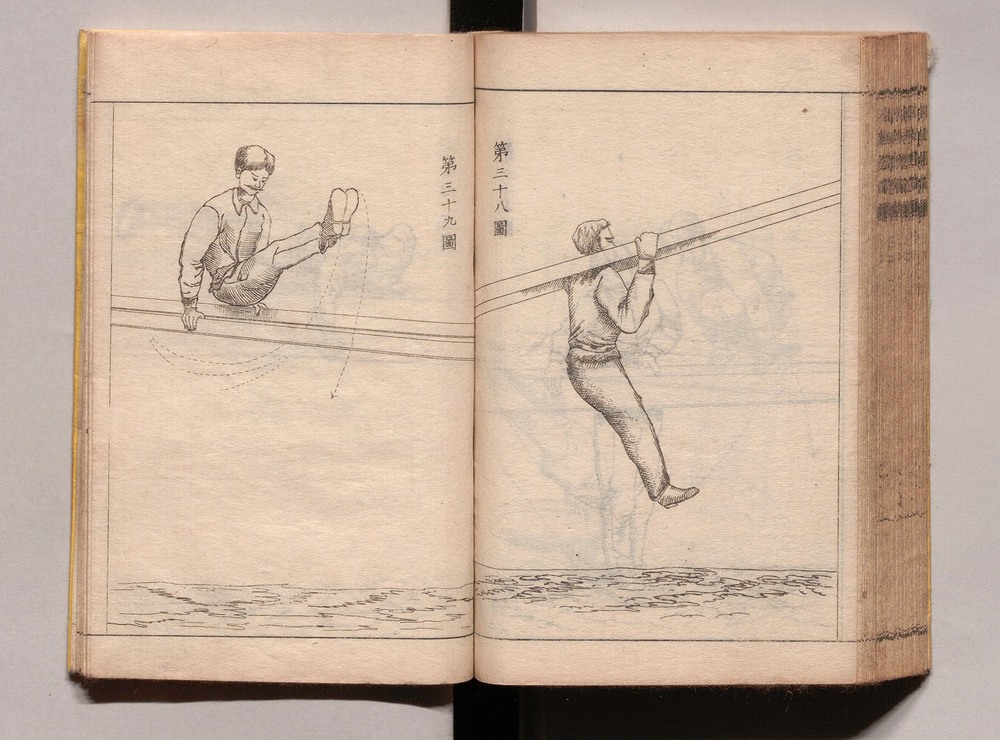 第三十八圖
第三十九圖